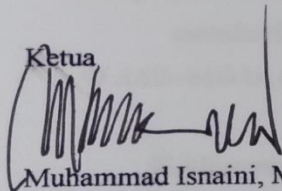 Ketua
Muhammad Isnaini, M